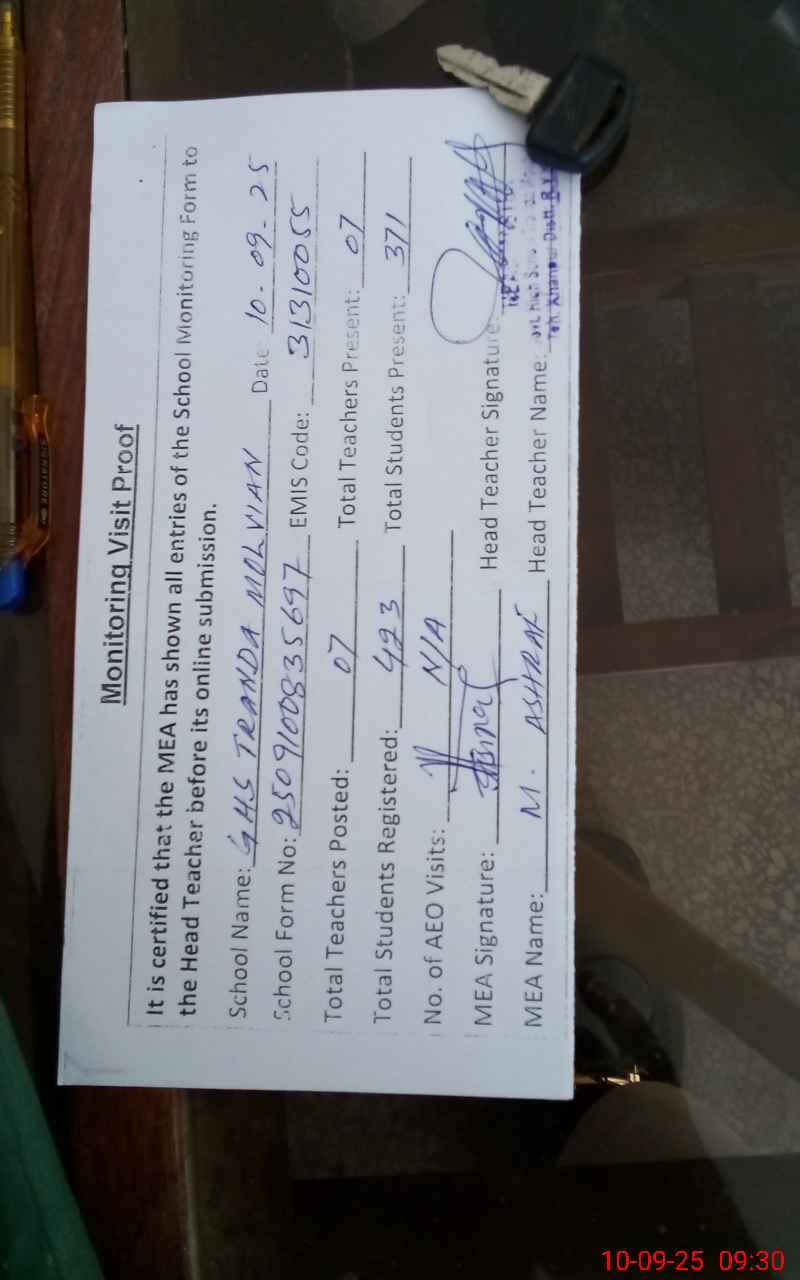 Monitoring Visit Proof
It is certified that the MEA has shown all entries of the School Monitoring Form to
the Head Teacher before its online submission.
School Name: GHS TRANDA MOLVIAN Date: 10-09-25
School Form No: 2509100835697 EMIS Code: 31310055
Total Teachers Posted: 07 Total Teachers Present: 07
Total Students Registered: 423 Total Students Present: 371
No. of AEO Visits: N/A
MEA Signature: Head Teacher Signature:
MEA Name: M. ASHRAF Head Teacher Name:
Teh. Khanpur Distt. R.Y.
10-09-25 09:30